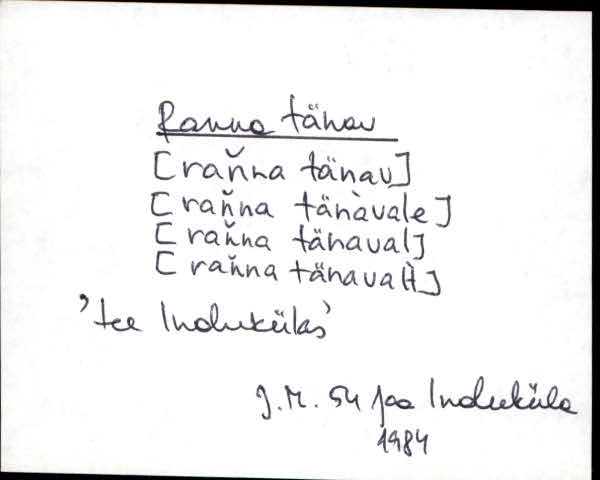 Ranna tänav
[rañ̌na tänau̯]
[raň̌na tänàvale]
[raňna tänaval]
[raňna tänavalt̀]
'tee Indukülas'
J. M. 54 Jaa Induküla
1984